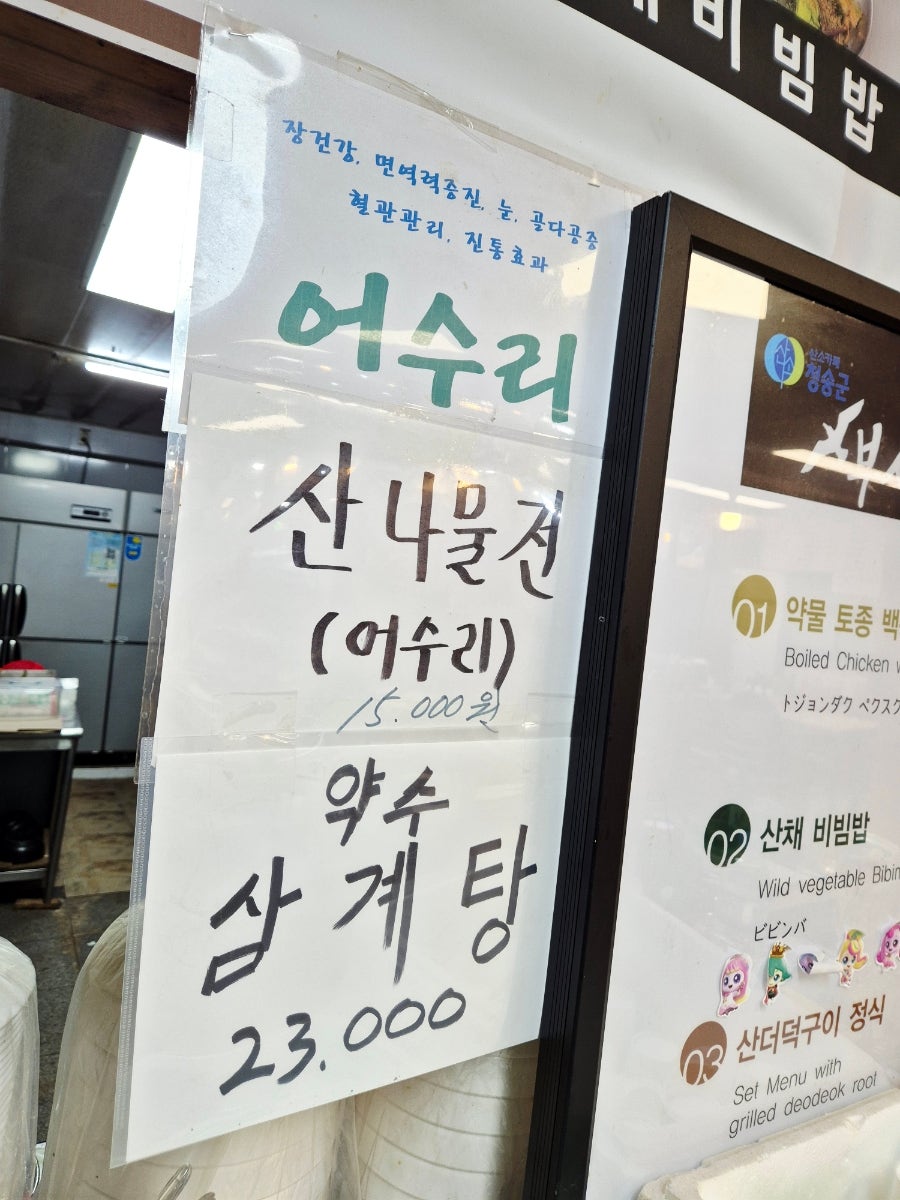 비빔밥
장건강, 면역력증진, 눈, 골다공증
혈관관리, 진통효과
어수리
산나물전
(어수리)
15.000원
약수
삼계탕
23.000
산소카페
청송군
01 약물 토종 백
Boiled Chicken
トジョンダク ペクスク
02 산채 비빔밥
Wild vegetable Bibim
ビビンバ
03 산더덕구이 정식
Set Menu with
grilled deodeok root